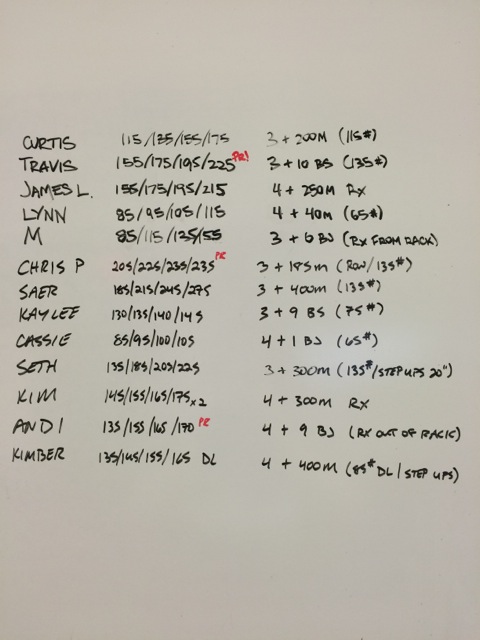 CURTIS 115/135/155/175 3 + 200M (115#)
TRAVIS 155/175/195/225 PR! 3 + 10 BS (135#)
JAMES L. 155/175/195/215 4 + 250M RX
LYNN 85/95/105/115 4 + 40M (65#)
M 85/115/135/55 3 + 6 BJ (RX FROM RACK)
CHRIS P 205/225/235/235 PR 3 + 185M (ROW/135#)
SAER 185/215/245/275 3 + 400M (135#)
KAYLEE 130/135/140/145 3 + 9 BS (75#)
CASSIE 85/95/100/105 4 + 1 BJ (65#)
SETH 135/185/205/225 3 + 300M (135#/STEP UPS 20")
KIM 145/155/165/175 x2 4 + 300M RX
ANDI 135/155/165/170 PR 4 + 9 BJ (RX OUT OF RACK)
KIMBER 135/145/155/165 DL 4 + 400M (85# DL/STEP UPS)